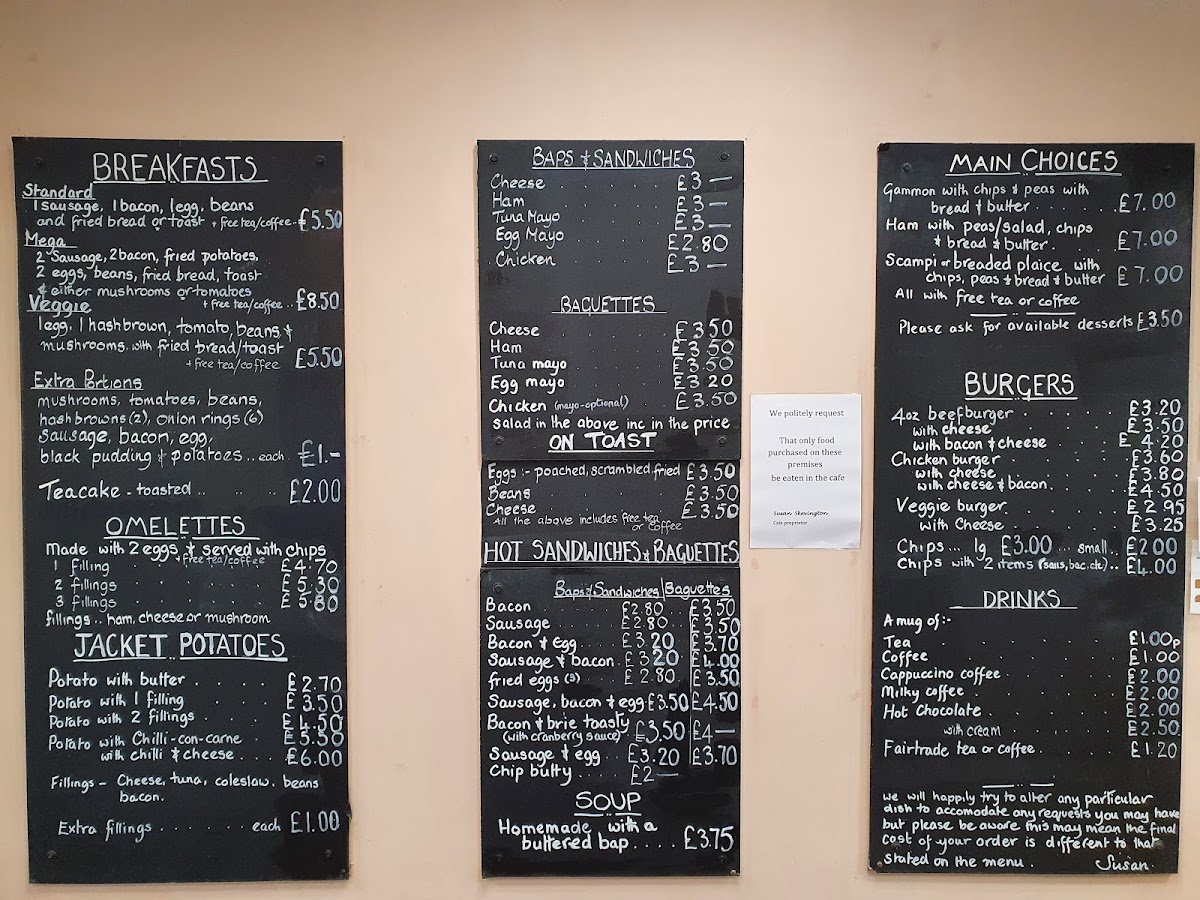 BREAKFASTS
Standard
1 sausage, 1 bacon, 1 egg, beans
and fried bread or toast + free tea/coffee - £5.50
Mega
2 sausage, 2 bacon, fried potatoes,
2 eggs, beans, fried bread, toast
& either mushrooms or tomatoes
+ free tea/coffee .. £8.50
Veggie
1 egg, 1 hashbrown, tomato, beans &
mushrooms. with fried bread/toast
+ free tea/coffee £5.50
Extra Portions
mushrooms, tomatoes, beans,
hashbrowns (2), onion rings (6)
sausage, bacon, egg,
black pudding & potatoes .. each. £1.-
Teacake - toasted .. .. .. £2.00
OMELETTES
Made with 2 eggs & served with chips
+ free tea/coffee
1 filling . . . . £4.70
2 fillings . . . . £5.30
3 fillings . . . . £5.80
fillings .. ham, cheese or mushroom
JACKET POTATOES
Potato with butter . . . . £2.70
Potato with 1 filling . . . £3.50
Potato with 2 fillings . . . £4.50
Potato with Chilli-con-carne . £5.50
with chilli & cheese . . . £6.00
Fillings - Cheese, tuna, coleslaw, beans
bacon.
Extra fillings . . . . . . each £1.00
BAPS & SANDWICHES
Cheese . . . . . £3 —
Ham . . . . . £3 —
Tuna Mayo . . . . £3 —
Egg Mayo . . . . £2.80
Chicken . . . . £3 —
BAGUETTES
Cheese . . . . . £3.50
Ham . . . . . £3.50
Tuna mayo . . . . £3.50
Egg mayo . . . . £3.20
Chicken (mayo-optional) . . £3.50
salad in the above inc in the price
ON TOAST
Eggs :- poached, scrambled, fried £3.50
Beans . . . . . £3.50
Cheese . . . . . £3.50
All the above includes free tea
or coffee
HOT SANDWICHES & BAGUETTES
Baps & Sandwiches | Baguettes
Bacon . . . £2.80 .. £3.50
Sausage . . . £2.80 .. £3.50
Bacon & Egg . . £3.20 £3.70
Sausage & bacon . £3.20 £4.00
fried eggs (s) . . £2.80 . £3.50
Sausage, bacon & egg - £3.50 £4.50
Bacon & brie toasty
(with cranberry sauce) . £3.50 £4 —
Sausage & egg . . £3.20 £3.70
Chip butty . . . £2 —
SOUP
Homemade with a
buttered bap . . . . £3.75
We politely request
That only food
purchased on these
premises
be eaten in the cafe
Susan Skevington
Cafe proprietor
MAIN CHOICES
Gammon with chips & peas with
bread & butter . . . . . . £7.00
Ham with peas/salad, chips
& bread & butter . . . £7.00
Scampi or breaded plaice with
chips, peas & bread & butter £7.00
All with free tea or coffee
Please ask for available desserts £3.50
BURGERS
4oz beefburger . . . . £3.20
with cheese . . . . £3.50
with bacon & cheese . . £4.20
Chicken burger . . . . £3.60
with cheese . . . . £3.80
with cheese & bacon . . . £4.50
Veggie burger . . . . £2.95
with Cheese . . . . £3.25
Chips ... lg £3.00 ... small .. £2.00
Chips with 2 items (saus, bac. etc) .. £4.00
DRINKS
A mug of :-
Tea . . . . . . £1.00p
Coffee . . . . . £1.00
Cappuccino coffee . . . £2.00
Milky coffee . . . . £2.00
Hot Chocolate . . . . £2.00
with cream . . . £2.50
Fairtrade tea or coffee . . . £1.20
we will happily try to alter any particular
dish to accomodate any requests you may have
but please be aware this may mean the final
cost of your order is different to that
stated on the menu. Susan.